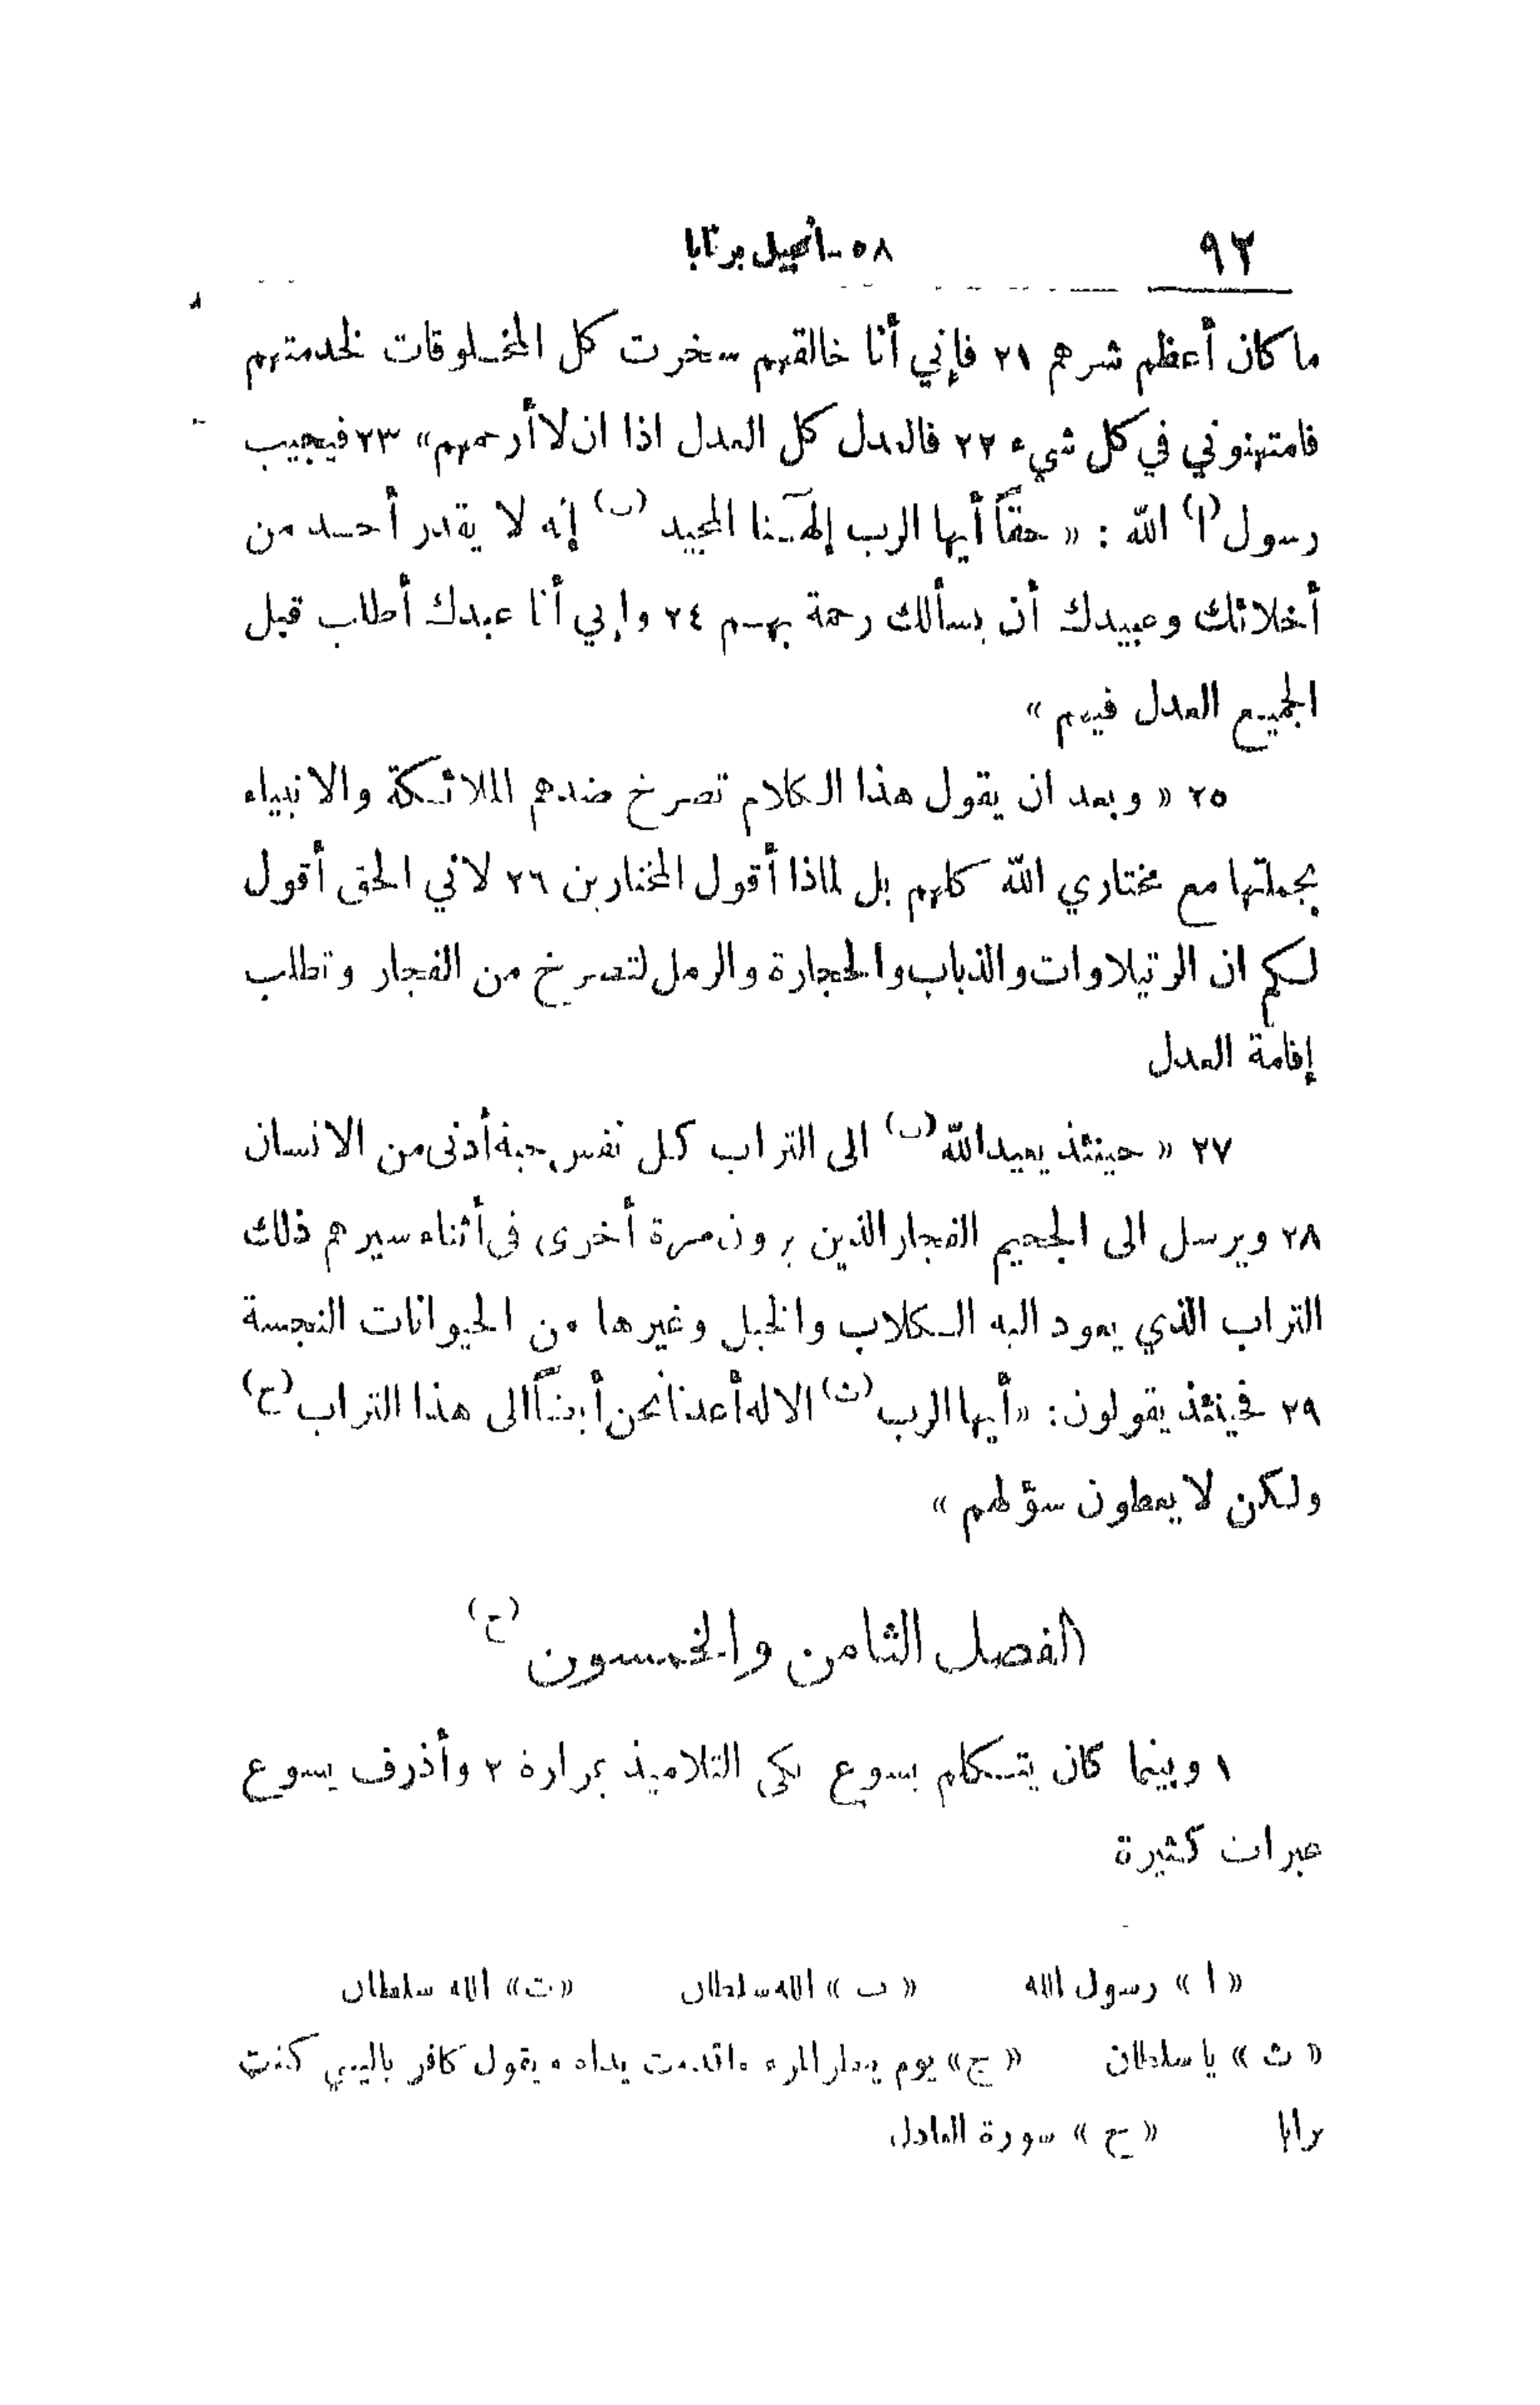 ٩٢ ٥٨-انجيل برنابا
ما كان أعظم شرهم ٢١ فإني أنا خالقهم سخرت كل المخلوقات لخدمتهم
فامتهنوني في كل شيء ٢٢ فالعدل كل العدل اذا ان لا أرحمهم» ٢٣ فيجيب
رسول (ا) الله : « حقاً أيها الرب إلهنا المجيد (ب) إنه لا يقدر أحد من
أخلائك وعبيدك أن يسألك رحمة بهم ٢٤ وإني أنا عبدك أطلب قبل
الجميع العدل فيهم »
٢٥ « وبعد ان يقول هذا الكلام تصرخ ضدهم الملائكة والانبياء
بجملتها مع مختاري الله كلهم بل لماذا أقول المختارين ٢٦ لاني الحق أقول
لكم ان الرتيلاوات والذباب والحجارة والرمل لتصرخ من الفجار وتطلب
إقامة العدل
٢٧ « حينئذ يعيد الله (ت) الى التراب كل نفس حية أدنى من الانسان
٢٨ ويرسل الى الجحيم الفجار الذين يرون مرة أخرى في أثناء سيرهم ذلك
التراب الذي يعود اليه الكلاب والخيل وغيرها من الحيوانات النجسة
٢٩ فحينئذ يقولون: «أيها الرب (ث) الاله أعدنا نحن أيضاً الى هذا التراب (ج)
ولكن لا يعطون سؤلهم »
الفصل الثامن والخمسون (ح)
١ وبينما كان يتكلم يسوع بكى التلاميذ بمرارة ٢ وأذرف يسوع
عبرات كثيرة
« ا » رسول الله « ب » الله سلطان «ت» الله سلطان
« ث » يا سلطان « ج» يوم ينظر المرء ما قدمت يداه ويقول كافر ياليتني كنت
ترابا « ح » سورة العادل